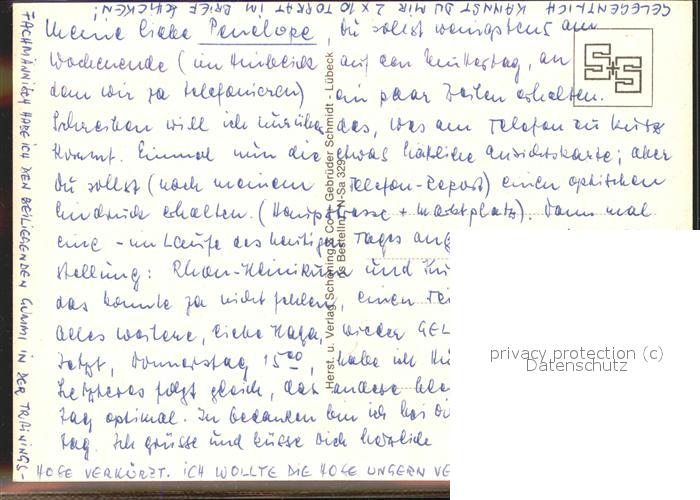 GELEGENTLICH KANNST DU MIR 2 x 10 TORRAT IM BRIEF SCHICKEN!
Meine liebe Penelope, du sollst wenigstens am
Wochenende (im Hinblick auf den Muttertag, an
dem wir ja telefonieren) ein paar Zeilen erhalten.
Schreiben will ich nur über das, was am Telefon zu kurz
kommt. Einmal nun die etwas häßliche Ansichtskarte; aber
du sollst (nach meinem Telefon-Report) einen optischen
Eindruck erhalten. (Hauptstrasse + Marktplatz). Dann mal
eine - im Laufe des heutigen Tages
stellung: Rhön-Klinikum und
das konnte ja nicht fehlen, einen
Alles weitere, liebe
Jetzt, Donnerstag 15⁰⁰, habe ich
Letzteres folgt gleich, das andere
tag optimal. In Gedanken bin ich bei
tag. Ich grüsse und küsse dich herzlich
FACHMÄNNISCH HABE ICH DEN BEILIEGENDEN GUMMI IN DER TRAININGS-
HOSE VERKÜRZT. ICH WOLLTE DIE HOSE UNGERN
Herst. u. Verlag Schöning & Co + Gebrüder Schmidt - Lübeck
S+S
privacy protection (c)
Datenschutz